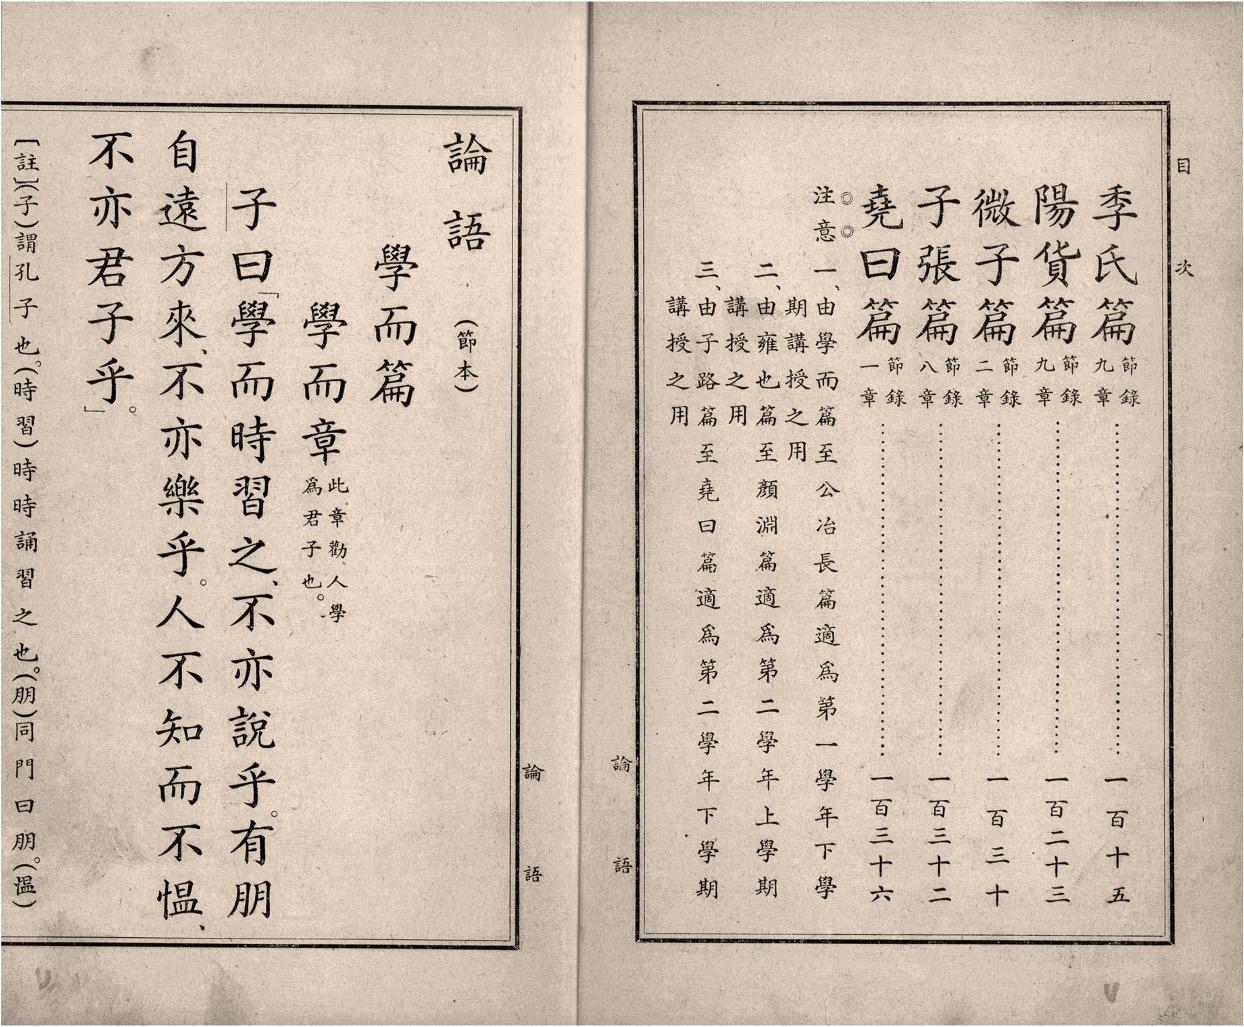 目次
季氏篇 節錄九章 一百十五
陽貨篇 節錄九章 一百二十三
微子篇 節錄二章 一百三十
子張篇 節錄八章 一百三十二
堯曰篇 節錄一章 一百三十六
◎注◎意
一、由學而篇至公冶長篇適爲第一學年下學
期講授之用
二、由雍也篇至顏淵篇適爲第二學年上學期
講授之用
三、由子路篇至堯曰篇適爲第二學年下學期
講授之用
論語
論語
論語(節本)
學而篇
學而章 此章勸人學爲君子也。
子曰「學而時習之、不亦說乎。有朋
自遠方來、不亦樂乎。人不知而不愠、
不亦君子乎。」
〔註〕(子)謂孔子也。(時習)時時誦習之也。(朋)同門曰朋。(愠)